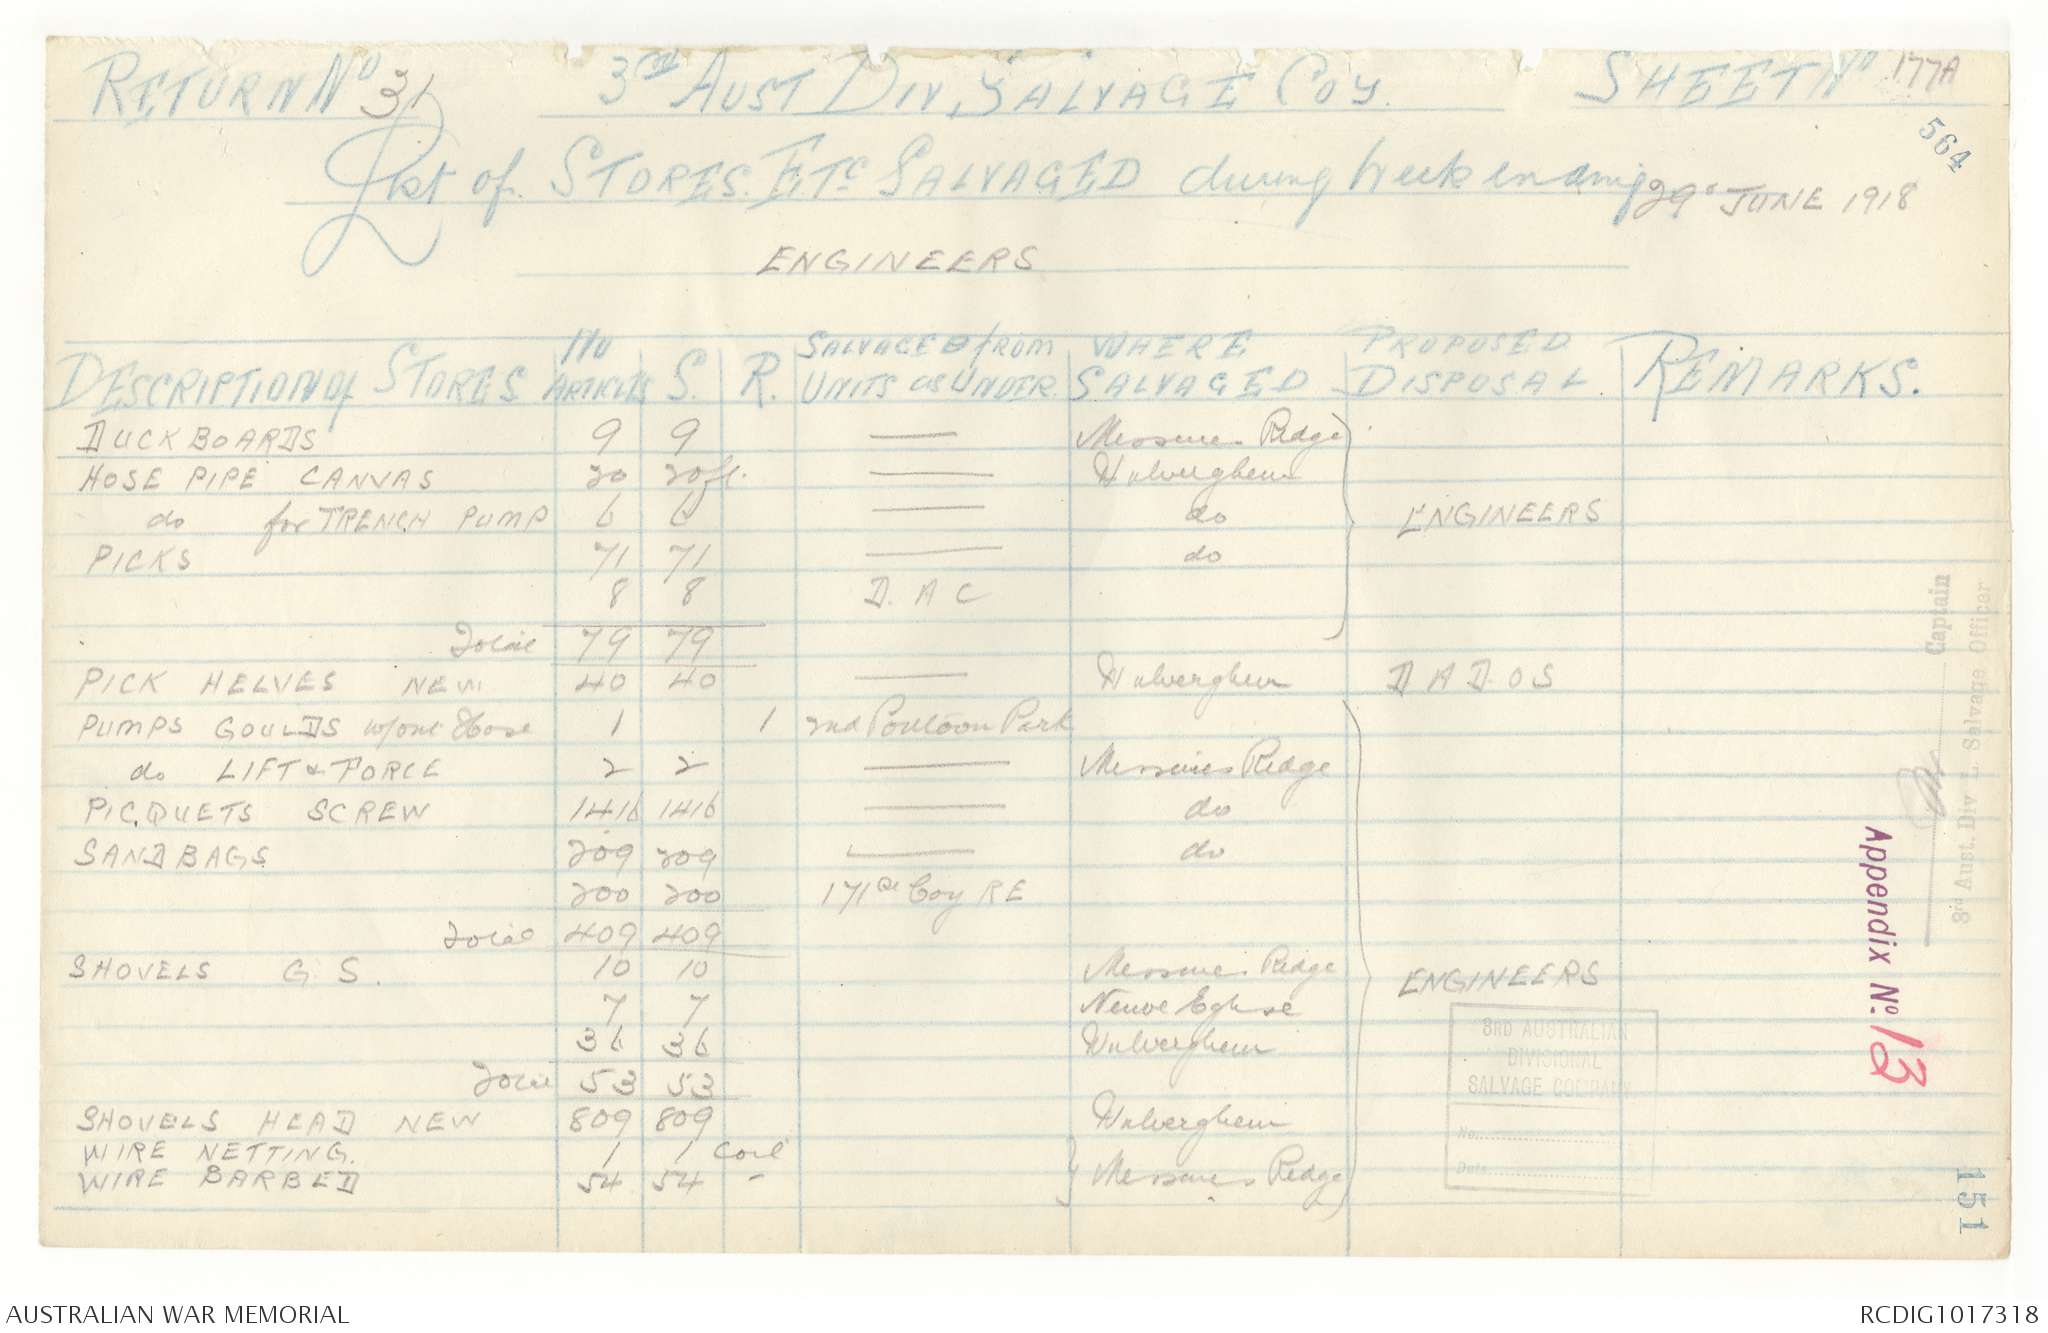 RETURN No 31 3rd AUST DIV, SALVAGE COY. SHEET No 177A
564
List of STORES. ETC SALVAGED during Week ending 29 JUNE 1918
ENGINEERS
DESCRIPTION of STORES No ARTICLES S. R. SALVAGED from UNITS as UNDER. WHERE SALVAGED PROPOSED DISPOSAL REMARKS.
DUCKBOARDS 9 9 — Messines Ridge
HOSE PIPE CANVAS 20 20ft. — Wulverghem
do for TRENCH PUMP 6 6 — do ENGINEERS
PICKS 71 71 — do
8 8 D. A C
Total 79 79
PICK HELVES NEW 40 40 — Wulverghem D A D. O S
PUMPS GOULDS w/out Hose 1 1 2nd Pontoon Park
do LIFT & FORCE 2 2 — Messines Ridge
PICQUETS SCREW 1416 1416 — do
SANDBAGS 209 209 — do
200 200 171st Coy R E
Total 409 409
SHOVELS G. S. 10 10 Messines Ridge ENGINEERS
7 7 Neuve Eglise
36 36 Wulverghem
Total 53 53
SHOVELS HEAD NEW 809 809 Wulverghem
WIRE NETTING. 1 1 coil
WIRE BARBED 54 54 - Messines Ridge
3RD AUSTRALIAN
DIVISIONAL
SALVAGE COMPANY
No.
Date
Captain
3rd Aust. Div L. Salvage Officer
Appendix No. 13
151
AUSTRALIAN WAR MEMORIAL RCDIG1017318